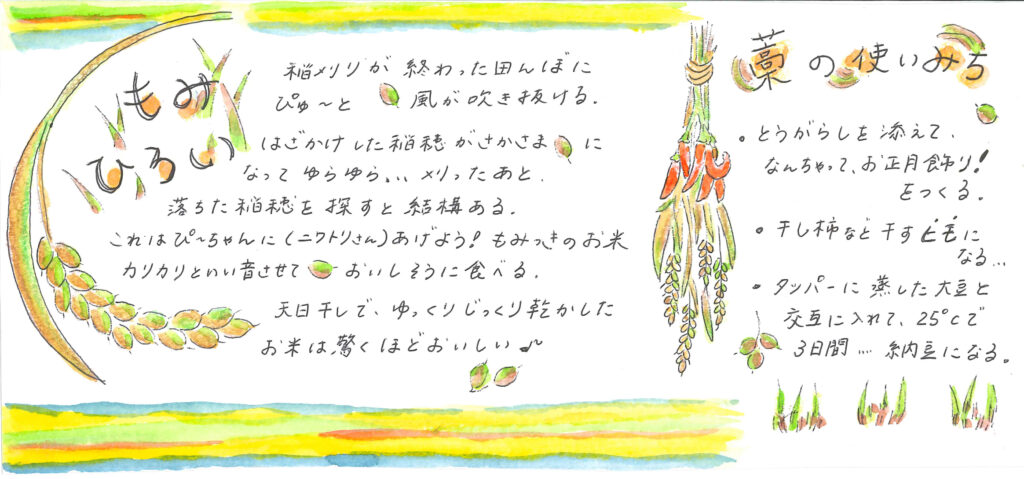 もみ
ひろい
稲メリリが終わった田んぼに
ぴゅ〜と 風が吹き抜ける.
はざかけした稲穂がさかさま に
なってゆらゆら... メリったあと.
落ちた稲穂を探すと結構ある.
これはぴ〜ちゃんに(ニワトリさん)あげよう! もみつきのお米
カリカリといい音させて おいしそうに食べる.
天日干しで、ゆっくりじっくり乾かした
お米は驚くほどおいしい♪
藁の使いみち
• とうがらしを添えて、
なんちゃって、お正月飾り!
をつくる.
• 干し柿など干すヒモに
なる...
• タッパーに蒸した大豆と
交互に入れて、25°Cで
3日間... 納豆になる.